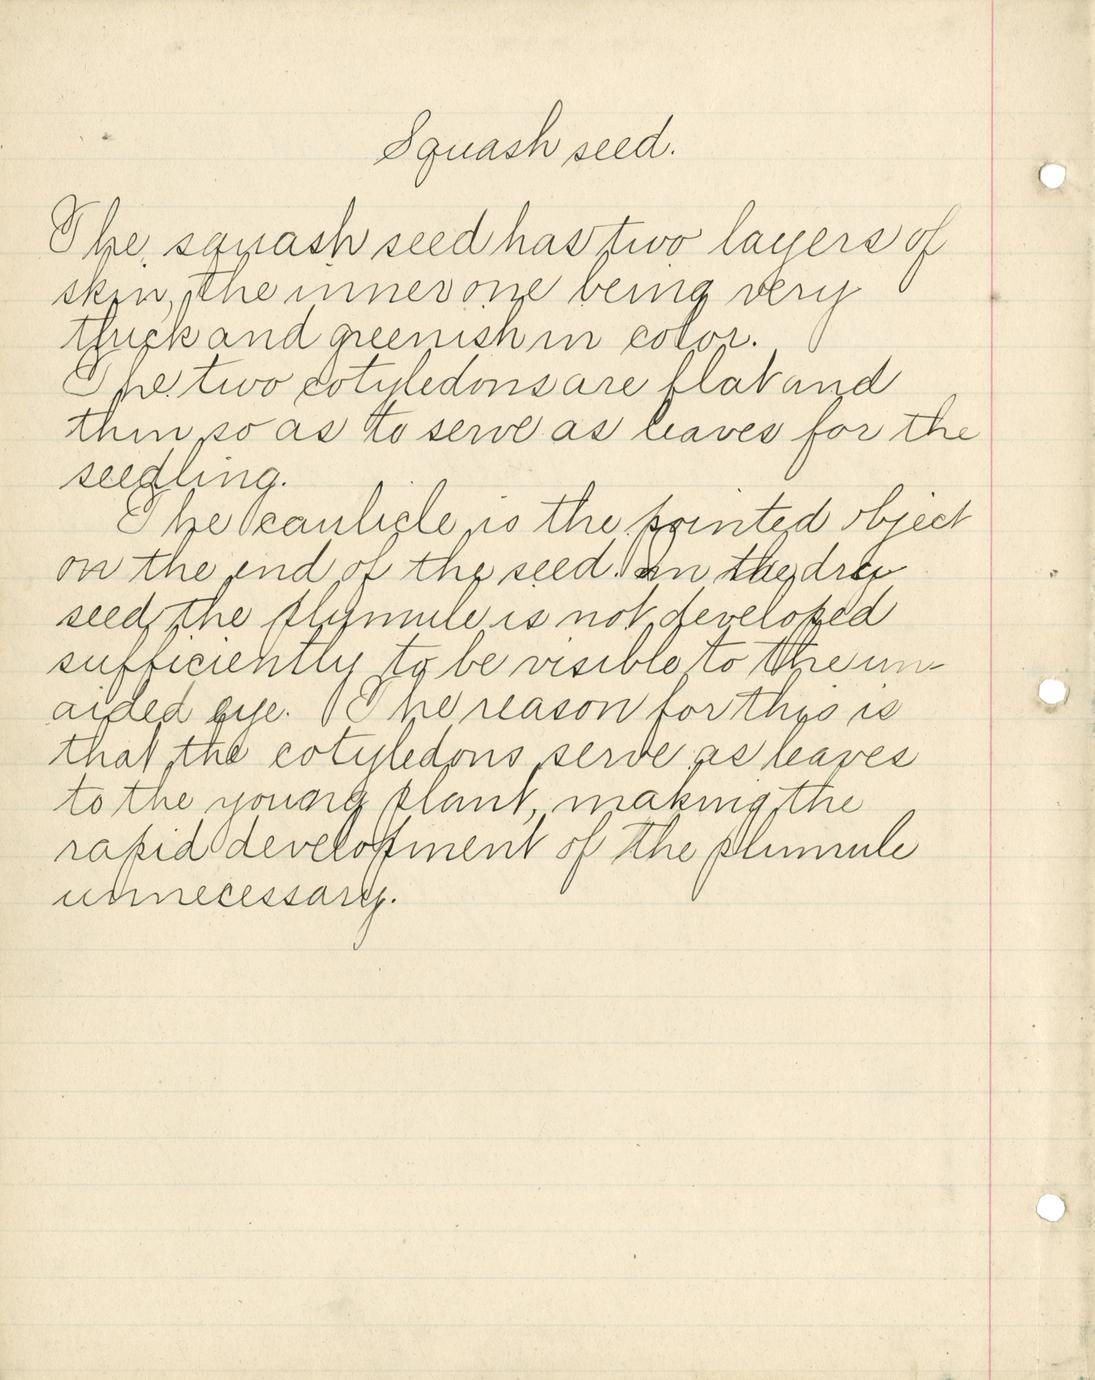 Squash seed.
The squash seed has two layers of
skin, the inner one being very
thick and greenish in color.
The two cotyledons are flat and
thin so as to serve as leaves for the
seedling.
The caulicle is the pointed object
on the end of the seed. In the dry
seed the plumule is not developed
sufficiently to be visible to the un-
aided eye. The reason for this is
that the cotyledons serve as leaves
to the young plant, making the
rapid development of the plumule
unnecessary.